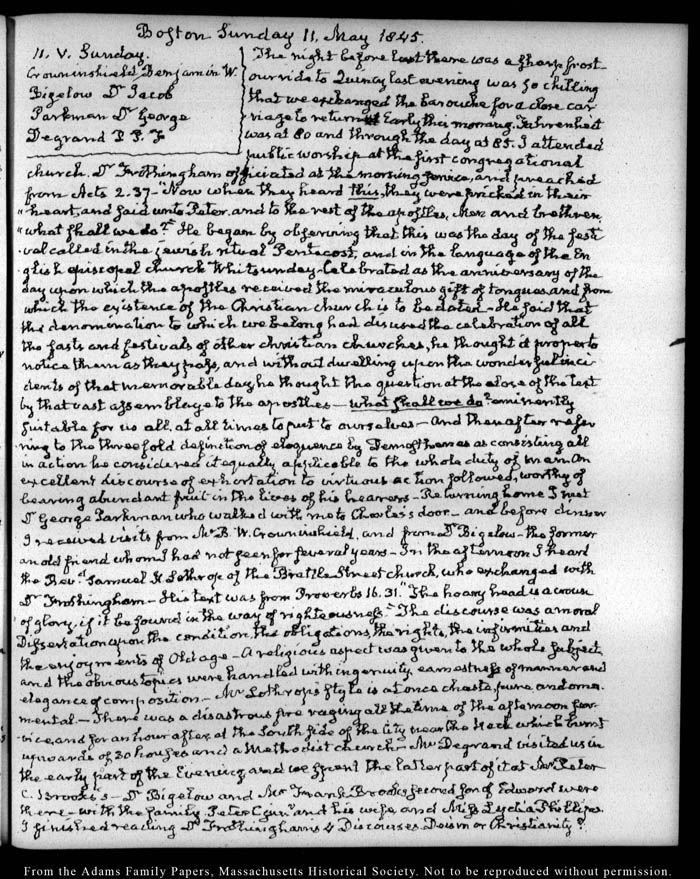 Boston Sunday 11. May 1845.
11. V. Sunday.
Crowninshield Benjamin W.
Bigelow Dr Jacob
Parkman Dr George
Degrand P. P. F
The night before last there was a sharp frost
our ride to Quincy last evening was so chilling
that we exchanged the barouche for a close car
riage to return Early this morning. Fahrenheit
was at 80 and through the day at 85. I attended
public worship at the first congregational
church. Dr Frothingham officiated at the morning service, and preached
from Acts 2.37. "Now when they heard this, they were pricked in their
"heart, and said unto Peter, and to the rest of the apostles, Men and brethren,
"what shall we do?" He began by observing that this was the day of the festi
val called in the jewish ritual Pentecost, and in the language of the En
glish episcopal church Whitsunday. Celebrated as the anniversary of the
day upon which the apostles received the miraculous gift of tongues, and from
which the existence of the Christian church is to be dated. He said that
the denomination to which we belong had disused the celebration of all
the fasts and festivals of other christian churches, he thought it proper to
notice them as they pass, and without dwelling upon the wonderful inci
dents of that memorable day, he thought the question at the close of the text
by that vast assemblage to the apostles — what shall we do? eminently
suitable for us all, at all times to put to ourselves — And then after refer
ring to the threefold definition of eloquence by Demosthenes as consisting all
in action he considered it equally applicable to the whole duty of man. An
excellent discourse of exhortation to virtuous action followed, worthy of
bearing abundant fruit in the lives of his hearers — Returning home I met
Dr George Parkman who walked with me to Charles's door — and before dinner
I received visits from Mr B. W. Crowninshield, and from Dr Bigelow — the former
an old friend whom I had not seen for several years — In the afternoon I heard
the Revd Samuel K Lothrop of the Brattle Street church, who exchanged with
Dr Frothingham — His text was from Proverbs 16.31. "The hoary head is a crown
of glory, if it be found in the way of righteousness." The discourse was a moral
Dissertation upon the condition, the obligations, the rights, the infirmities and
the enjoyments of Old age — A religious aspect was given to the whole subject,
and the obvious topics were handled with ingenuity, earnestness of manner and
elegance of composition — Mr Lothrop's style is at once chaste, pure, and orna.
mental. — There was a disastrous fire raging all the time of the afternoon ser
vice, and for an hour after, at the South side of the City near the Neck which burnt
upwards of 30 houses and a Methodist church — Mr Degrand visited us in
the early part of the Evening, and we spent the latter part of it at Mr Peter
C. Brooks's — Dr Bigelow and Mr Frank Brooks second son of Edward were
there — with the family, Peter C. junr and his wife, and Miss Lydia Phillips.
I finished reading Dr Frothinghams 4 Discourses Deism or Christianity?
From the Adams Family Papers, Massachusetts Historical Society. Not to be reproduced without permission.